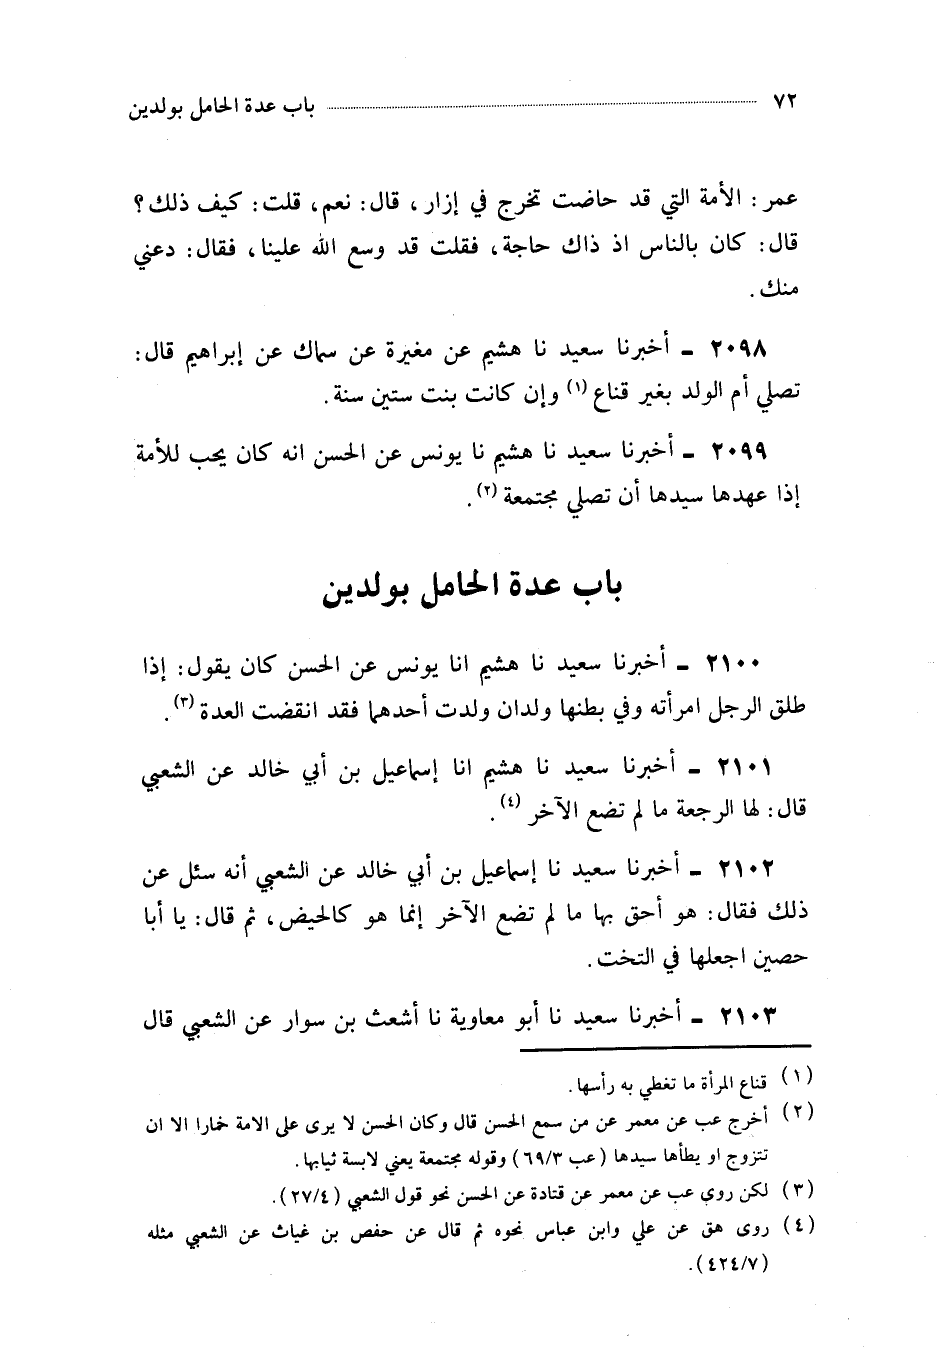 ٧٢ باب عدة الحامل بولدين
عمر : الأمة التي قد حاضت تخرج في إزار ، قال : نعم ، قلت : كيف ذلك ؟
قال : كان بالناس اذ ذاك حاجة ، فقلت قد وسع الله علينا ، فقال : دعني
منك .
٢٠٩٨ ـ أخبرنا سعيد نا هشيم عن مغيرة عن سماك عن إبراهيم قال :
تصلي أم الولد بغير قناع (١) وإن كانت بنت ستين سنة .
٢٠٩٩ ـ أخبرنا سعيد نا هشيم نا يونس عن الحسن انه كان يحب للأمة
إذا عهدها سيدها أن تصلي مجتمعة (٢) .
باب عدة الحامل بولدين
٢١٠٠ ـ أخبرنا سعيد نا هشيم انا يونس عن الحسن كان يقول : إذا
طلق الرجل امرأته وفي بطنها ولدان ولدت أحدهما فقد انقضت العدة (٣) .
٢١٠١ ـ أخبرنا سعيد نا هشيم انا إسماعيل بن أبي خالد عن الشعبي
قال : لها الرجعة ما لم تضع الآخر (٤) .
٢١٠٢ ـ أخبرنا سعيد نا إسماعيل بن أبي خالد عن الشعبي أنه سئل عن
ذلك فقال : هو أحق بها ما لم تضع الآخر إنما هو كالحيض ، ثم قال : يا أبا
حصين اجعلها في التخت .
٢١٠٣ ـ أخبرنا سعيد نا أبو معاوية نا أشعث بن سوار عن الشعبي قال
(١) قناع المرأة ما تغطي به رأسها .
(٢) أخرج عب عن معمر عن من سمع الحسن قال وكان الحسن لا يرى على الامة خمارا الا ان
تتزوج او يطأها سيدها ( عب ٦٩/٣ ) وقوله مجتمعة يعني لابسة ثيابها .
(٣) لكن روي عب عن معمر عن قتادة عن الحسن نحو قول الشعبي ( ٢٧/٤ ) .
(٤) روى هق عن علي وابن عباس نحوه ثم قال عن حفص بن غياث عن الشعبي مثله
( ٤٢٤/٧ ) .